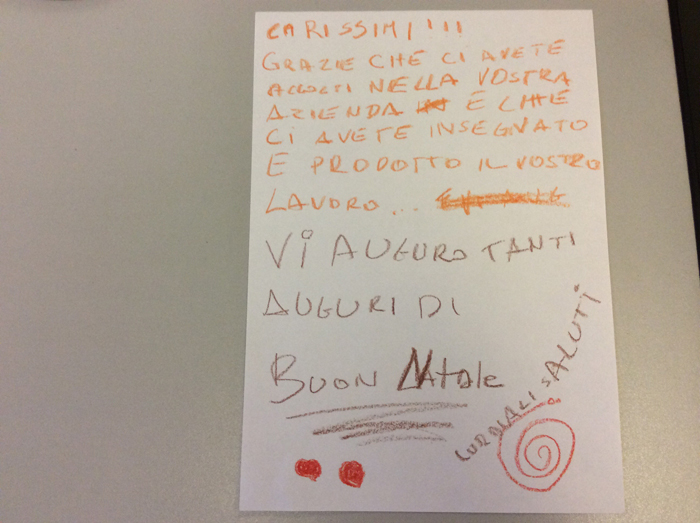 CARISSIMI!!!
GRAZIE CHE CI AVETE
ACCOLTI NELLA VOSTRA
AZIENDA E CHE
CI AVETE INSEGNATO
E PRODOTTO IL VOSTRO
LAVORO...
Vi AUGURO TANTI
AUGURI DI
BUON NAtale
CORDIALI SALUTi